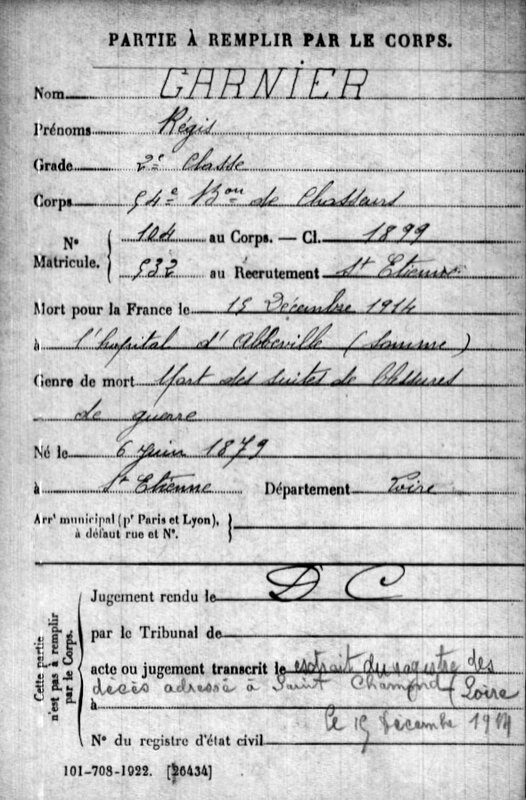 PARTIE À REMPLIR PAR LE CORPS.
Nom GARNIER
Prénoms Régis
Grade 2e Classe
Corps 54e Bon de Chasseurs
N° Matricule. { 104 au Corps. — Cl. 1899
532 au Recrutement St Etienne
Mort pour la France le 15 Décembre 1914
à l'hopital d'Abbeville (Somme)
Genre de mort Mort des suites de blessures
de guerre
Né le 6 juin 1879
à St Etienne Département Loire
Arrt municipal (pr Paris et Lyon),
à défaut rue et N°. }
Cette partie n'est pas à remplir par le Corps.
D C
Jugement rendu le
par le Tribunal de
acte ou jugement transcrit le extrait du registre des
décès adressé à Saint Chamond (Loire
à
le 15 Decembre 1914
N° du registre d'état civil
101-708-1922. [26434]